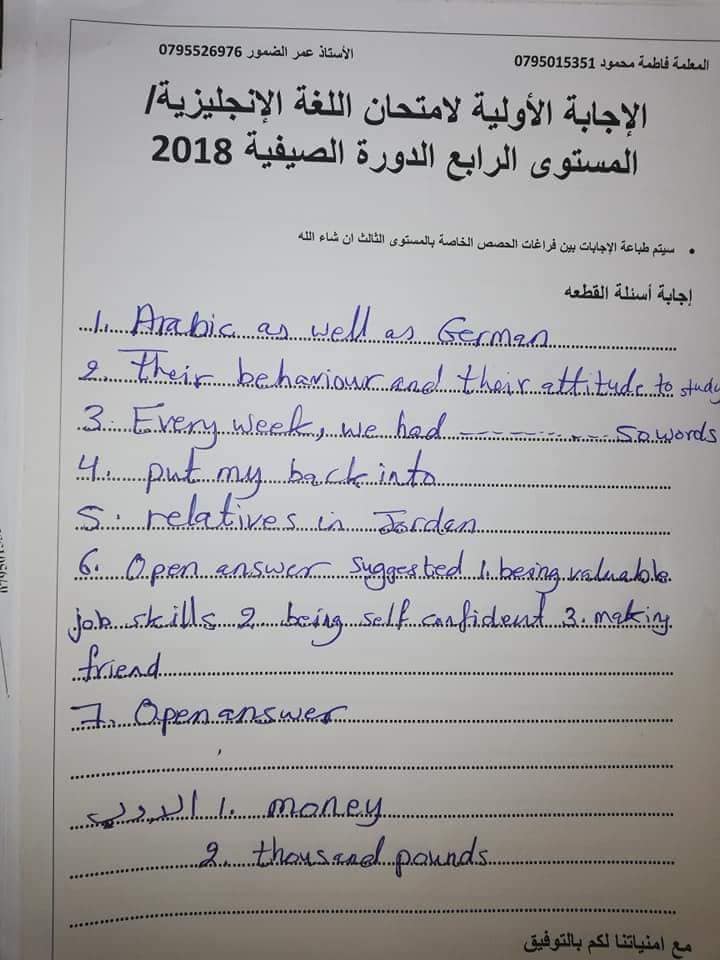 المعلمة فاطمة محمود 0795015351 الأستاذ عمر الضمور 0795526976
الإجابة الأولية لامتحان اللغة الإنجليزية/
المستوى الرابع الدورة الصيفية 2018
• سيتم طباعة الإجابات بين فراغات الحصص الخاصة بالمستوى الثالث ان شاء الله
إجابة أسئلة القطعه
1. Arabic as well as German
2. Their behaviour and their attitude to study
3. Every week, we had ------------ 50 words
4. put my back into
5. relatives in Jordan
6. Open answer suggested 1. being valuable
job skills 2. being self confident 3. making
friend
7. Open answer
1. money
2. thousand pounds
مع امنياتنا لكم بالتوفيق